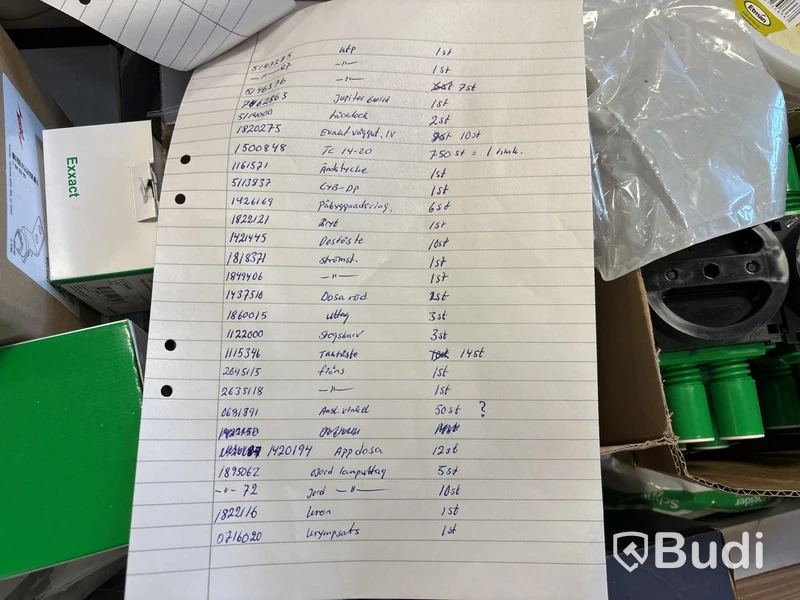 5147283 utp 1st
—"— 87 —"— 1st
5146376 —"— 7st
7462863 Jupiter 1st
5114000 Täcklock 2st
1820275 Exakt väggut. IV 10st
1500848 TC 14-20 750st = 1 hink.
1161571 Ändstycke 1st
5113837 CYB-DP 1st
1426169 Påbyggnadsring. 6st
1822121 Bryt 1st
1421445 Dosfäste 10st
1818371 Strömst. 1st
1849406 —"— 1st
1437516 Dosa röd 2st
1860015 uttag 3st
1122600 Stegskarv 3st
1115346 Takfäste 14st
2645115 fläns 1st
2635118 —"— 1st
0681891 Ansl. vinkel 50st ?
1420194 App dosa 12st
1895062 ojord lamputtag 5st
—"— 72 Jord —"— 10st
1822116 Kron 1st
0716020 Krympsats 1st
Exxact
Elmän
Schneider
Budi